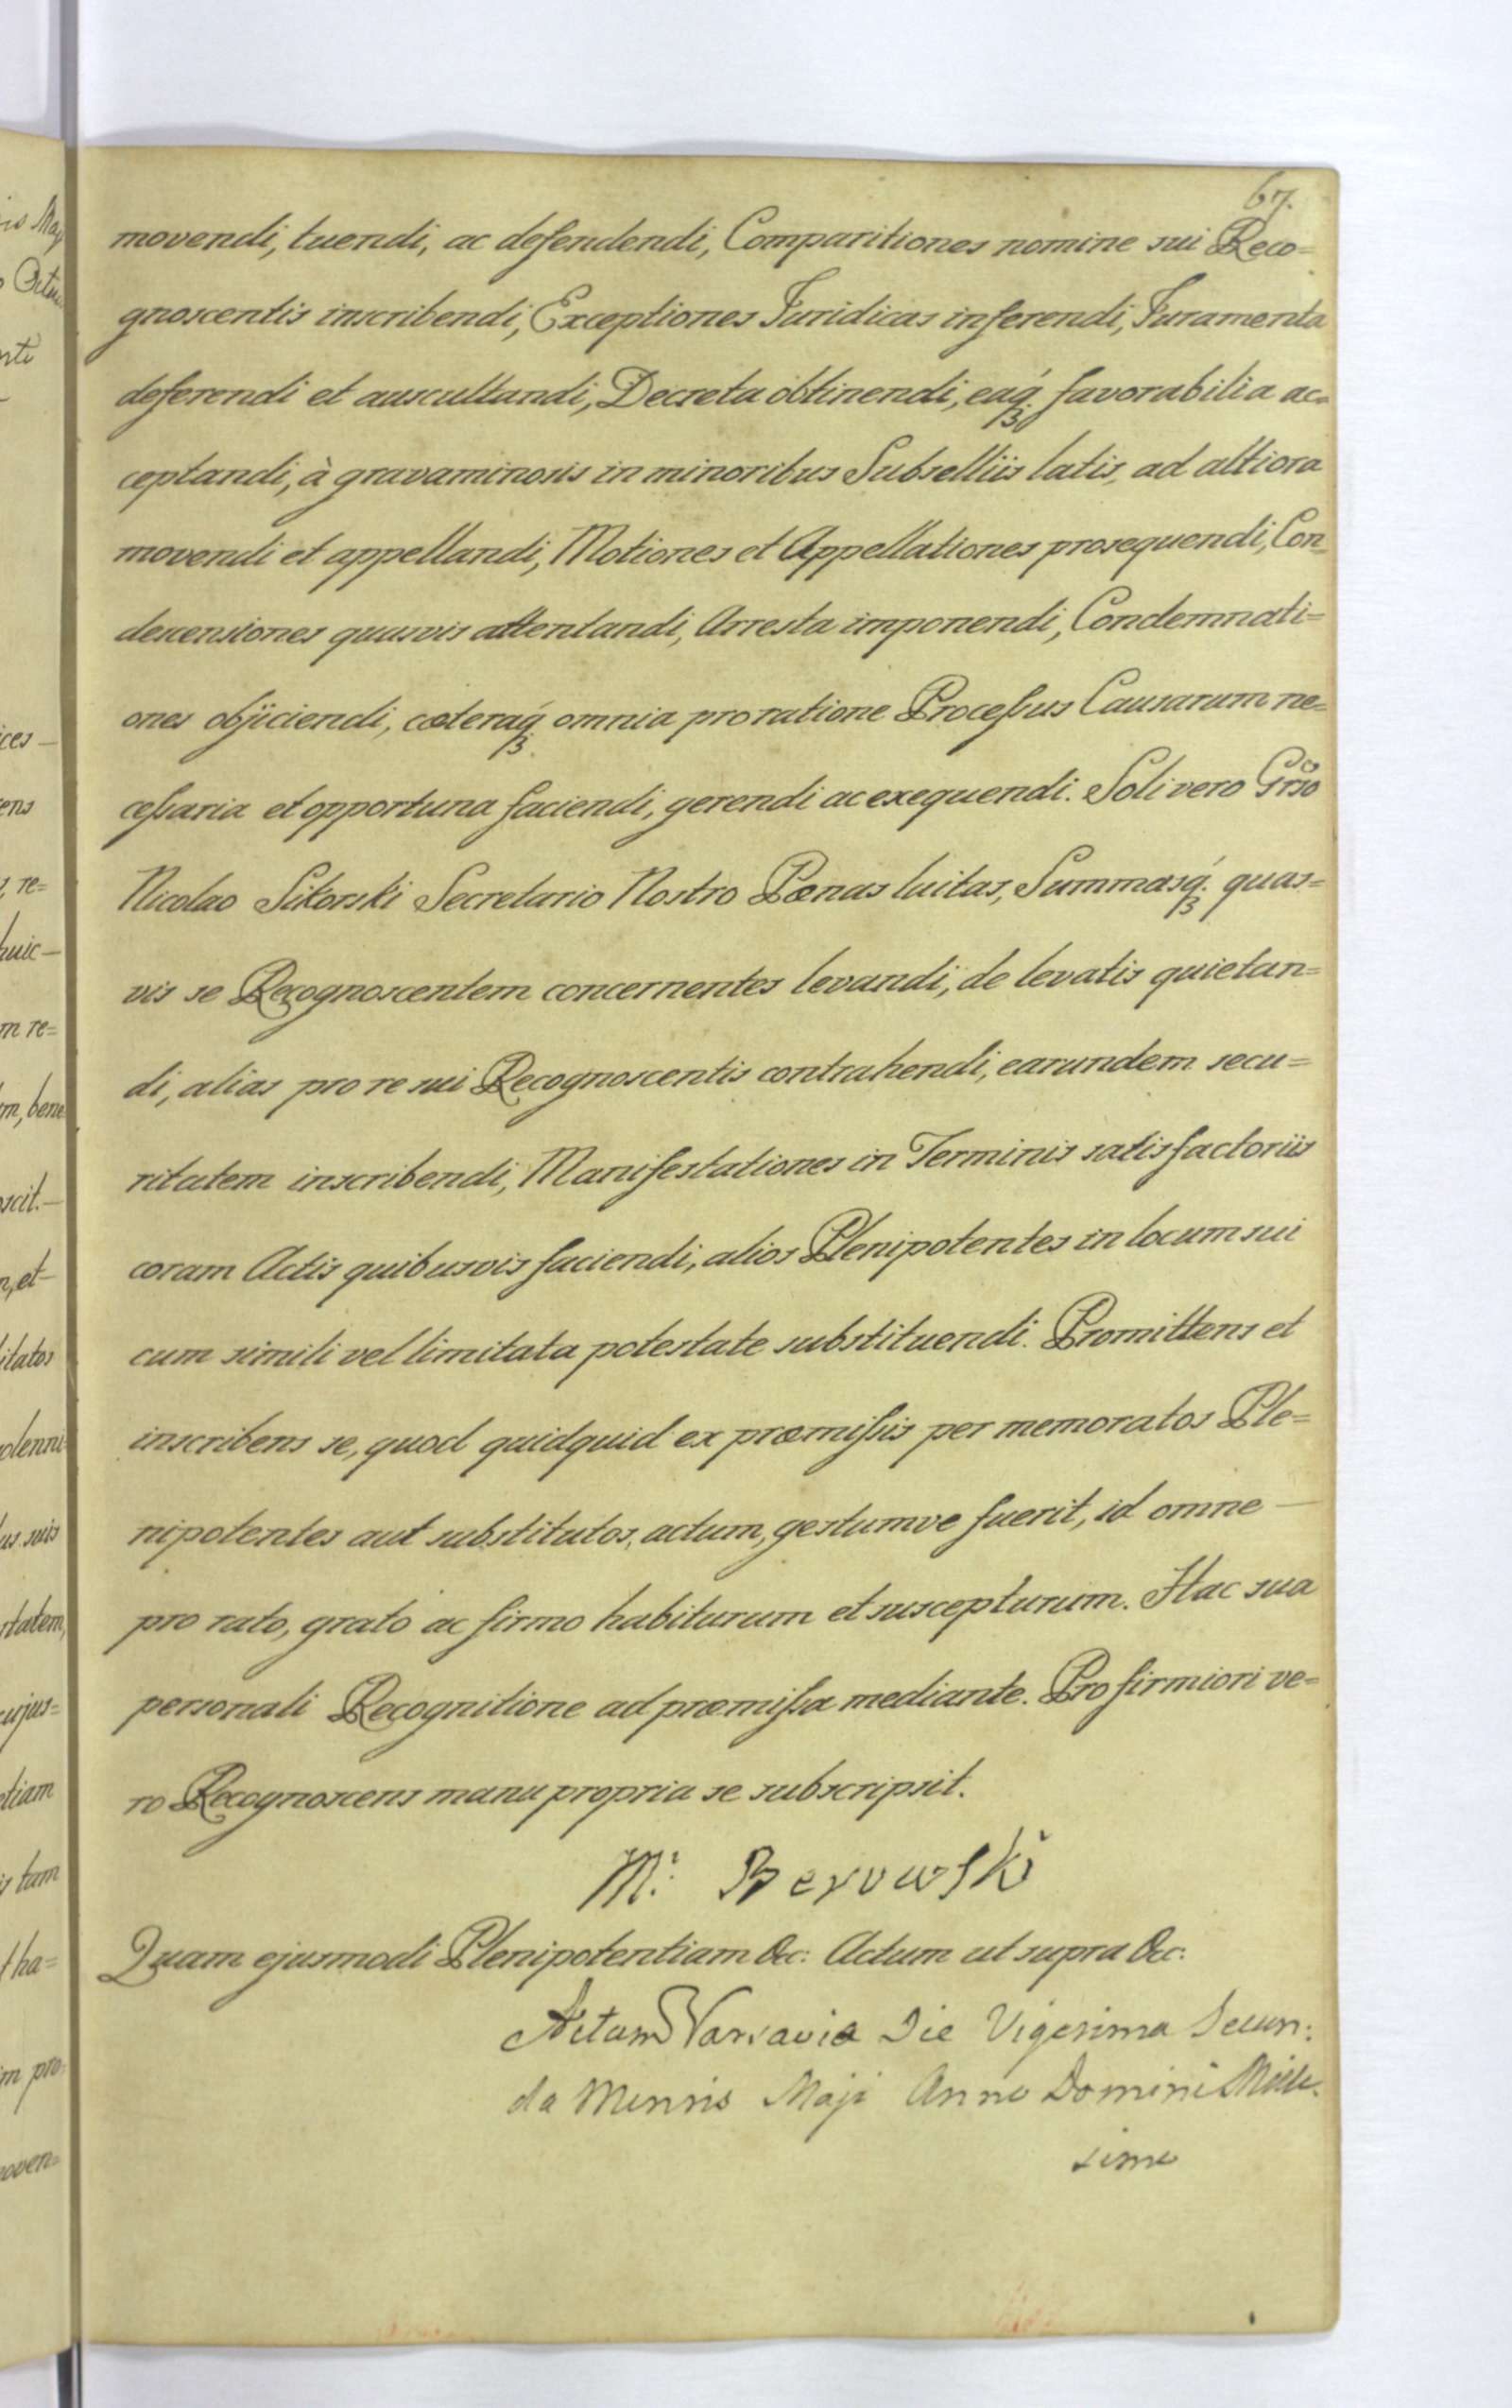 67.
movendi, tuendi, ac defendendi, Comparitiones nomine sui Reco=
gnoscentis inscribendi, Exceptiones Juridicas inferendi, Juramenta
deferendi et auscultandi, Decreta obtinendi, eaq́ꝫ favorabilia ac=
ceptandi, à gravaminosis in minoribus Subselliis latis, ad altiora
movendi et appellandi, Motiones et Appellationes prosequendi, Con=
descensiones quasvis attentandi, Arresta imponendi, Condemnati=
ones objiciendi, cæteraq́ꝫ omnia pro ratione Processus Causarum ne=
cessaria et opportuna faciendi, gerendi ac exequendi. Soli vero Grso
Nicolao Sikorski Secretario Nostro Pænas luitas, Summasq́ꝫ quas=
vis se Recognoscentem concernentes levandi, de levatis quietan=
di, alias pro re sui Recognoscentis contrahendi, earundem secu=
ritatem inscribendi, Manifestationes in Terminis satisfactoriis
coram Actis quibusvis faciendi, alios Plenipotentes in locum sui
cum simili vel limitata potestate substituendi. Promittens et
inscribens se, quod quidquid ex præmissis per memoratos Ple=
nipotentes aut substitutos, actum, gestumve fuerit, id omne —
pro rato, grato ac firmo habiturum et suscepturum. Hac sua
personali Recognitione ad præmissa mediante. Pro firmiori ve=
ro Recognoscens manu propria se subscripsit.
M: Berowski
Quam ejusmodi Plenipotentiam &c: Actum ut supra &c:
Actum Varsaviæ Die Vigesima Secun:
da Mensis Maji Anno Domini Mille.
simo